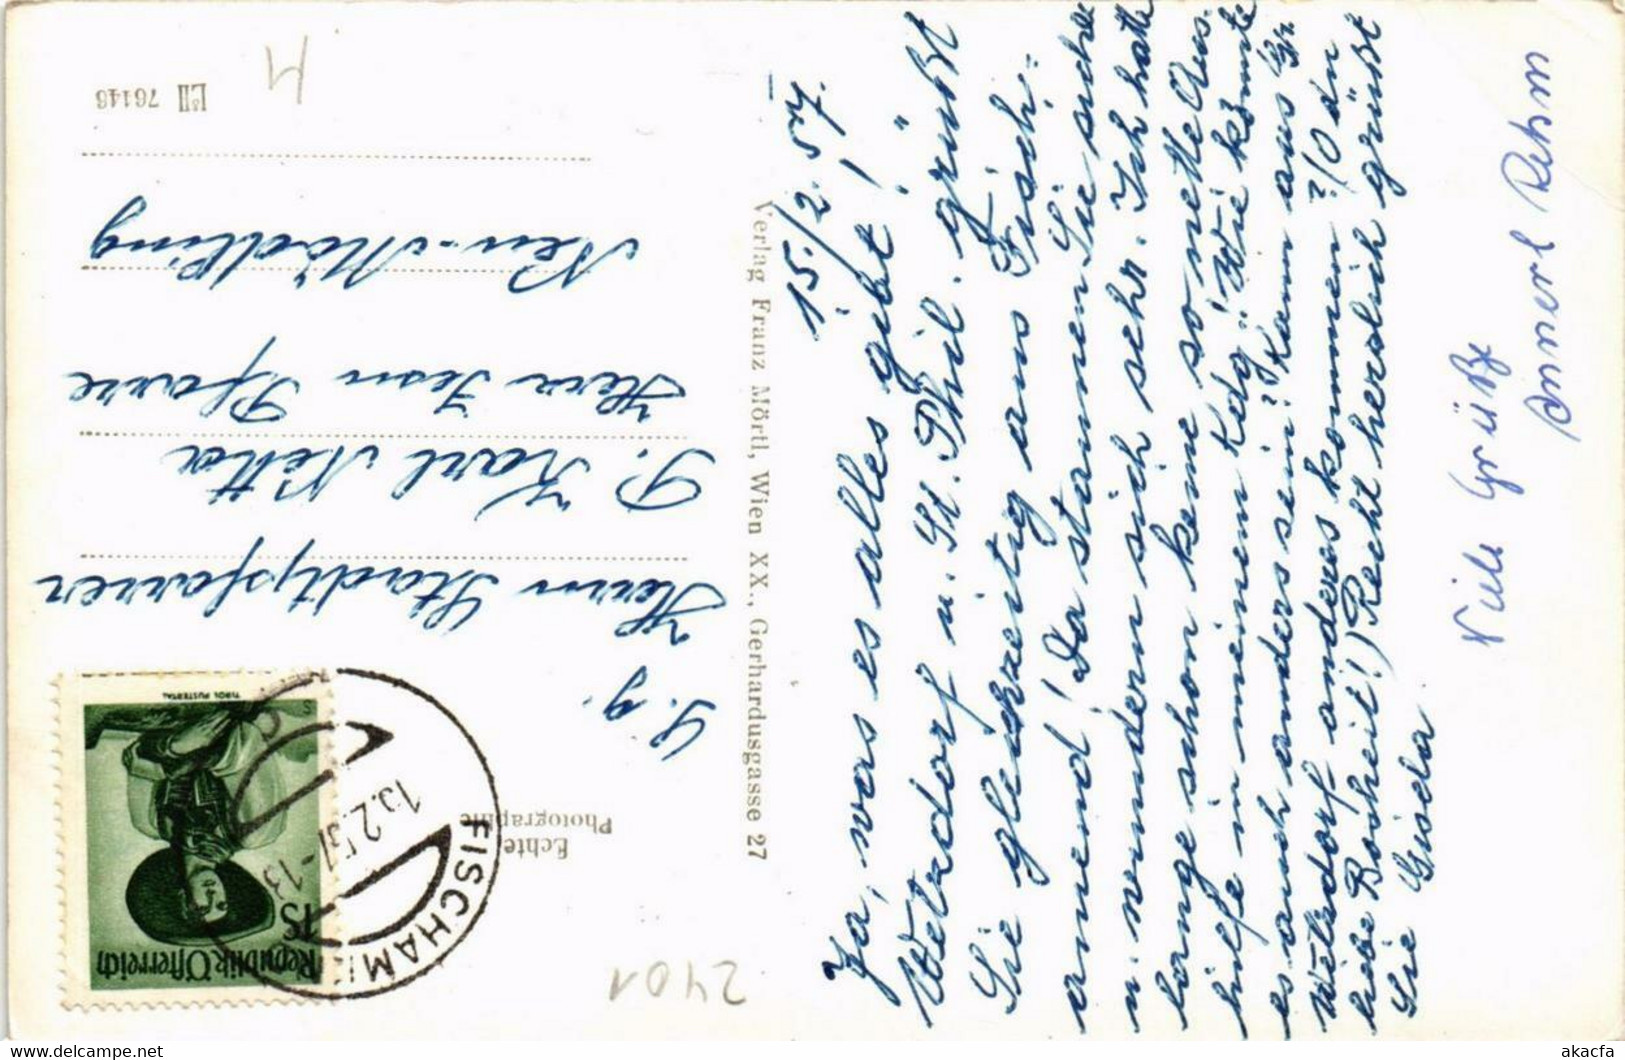 15./2. 57.
Ja, was es alles gibt!
Wetzdorf u. St. Phil. grüßt
Sie gleichzeitig aus Fisch-
amend! Da stammen Sie sicher
u. wundern sich sehr. Ich hatte
lange schon keine so nette Aus-
hilfe in meinem Kdg. "Wie könnte
es auch anders sein? Kann aus Gr.
Wetzdorf anderes kommen? (O du
liebe Bosheit!) Recht herzlich grüßt
Sie Gisela
Viele Grüße
Annerl Rehm
Verlag Franz Mörtl, Wien XX., Gerhardusgasse 27
Echte
Photographie
Republik Österreich
1S
TIROL PUSTERTAL
FISCHAM
15.2.57-13
S. g.
Herrn Stadtpfarrer
P. Karl
Herz Jesu Pfarre
Neu-Mödling
LII 76146
2401
akacfa